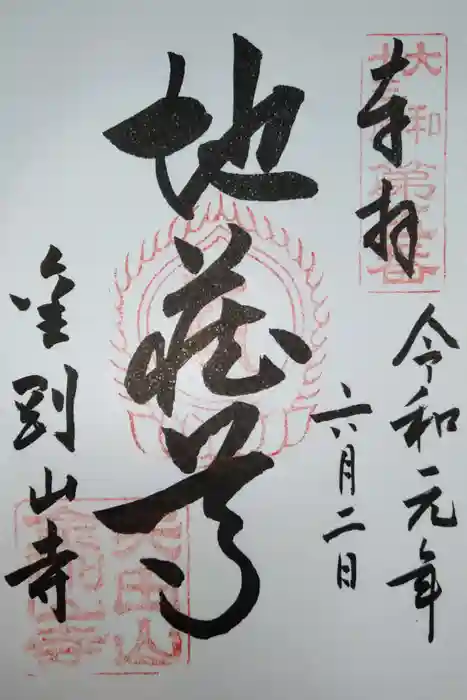 奉拝
令和元年
六月二日
地蔵尊
金剛山寺